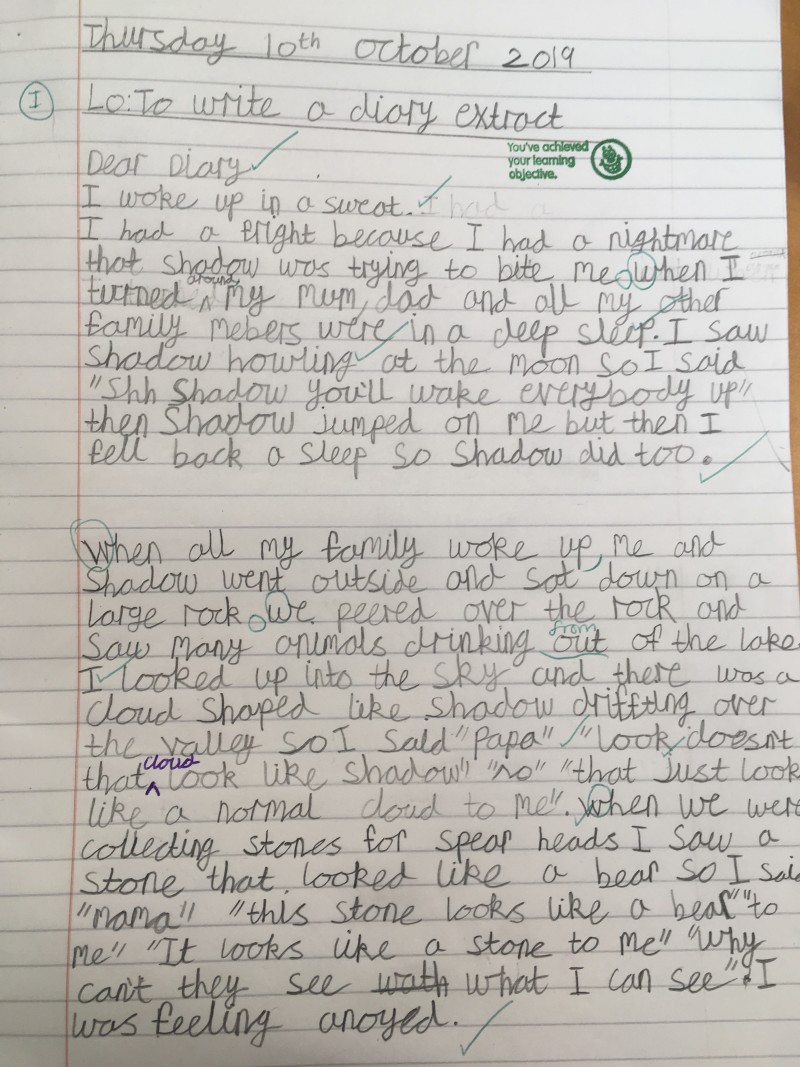 Thursday 10th October 2019
I LO: To write a diary extract
You've achieved
your learning
objective.
Dear Diary
I woke up in a sweat. I had a
I had a fright because I had a nightmare
that Shadow was trying to bite me. When I
turned around my mum, dad and all my other
family mebers were in a deep sleep. I saw
Shadow howling at the moon so I said
"Shh Shadow you'll wake everybody up"
then Shadow jumped on me but then I
fell back a sleep so Shadow did too.
When all my family woke up, me and
Shadow went outside and sat down on a
large rock. We peered over the rock and
from
saw many animals drinking out of the lake.
I looked up into the sky and there was a
cloud shaped like Shadow driffting over
the valley so I said "Papa" "look doesn't
that cloud look like Shadow" "no" "that just look
like a normal cloud to me". When we were
collecting stones for spear heads I saw a
stone that looked like a bear so I said
"mama" "this stone looks like a bear" "to
me" "It looks like a stone to me" "Why
can't they see wath what I can see". I
was feeling anoyed.